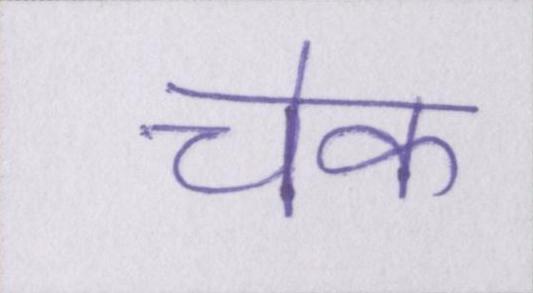 चेक